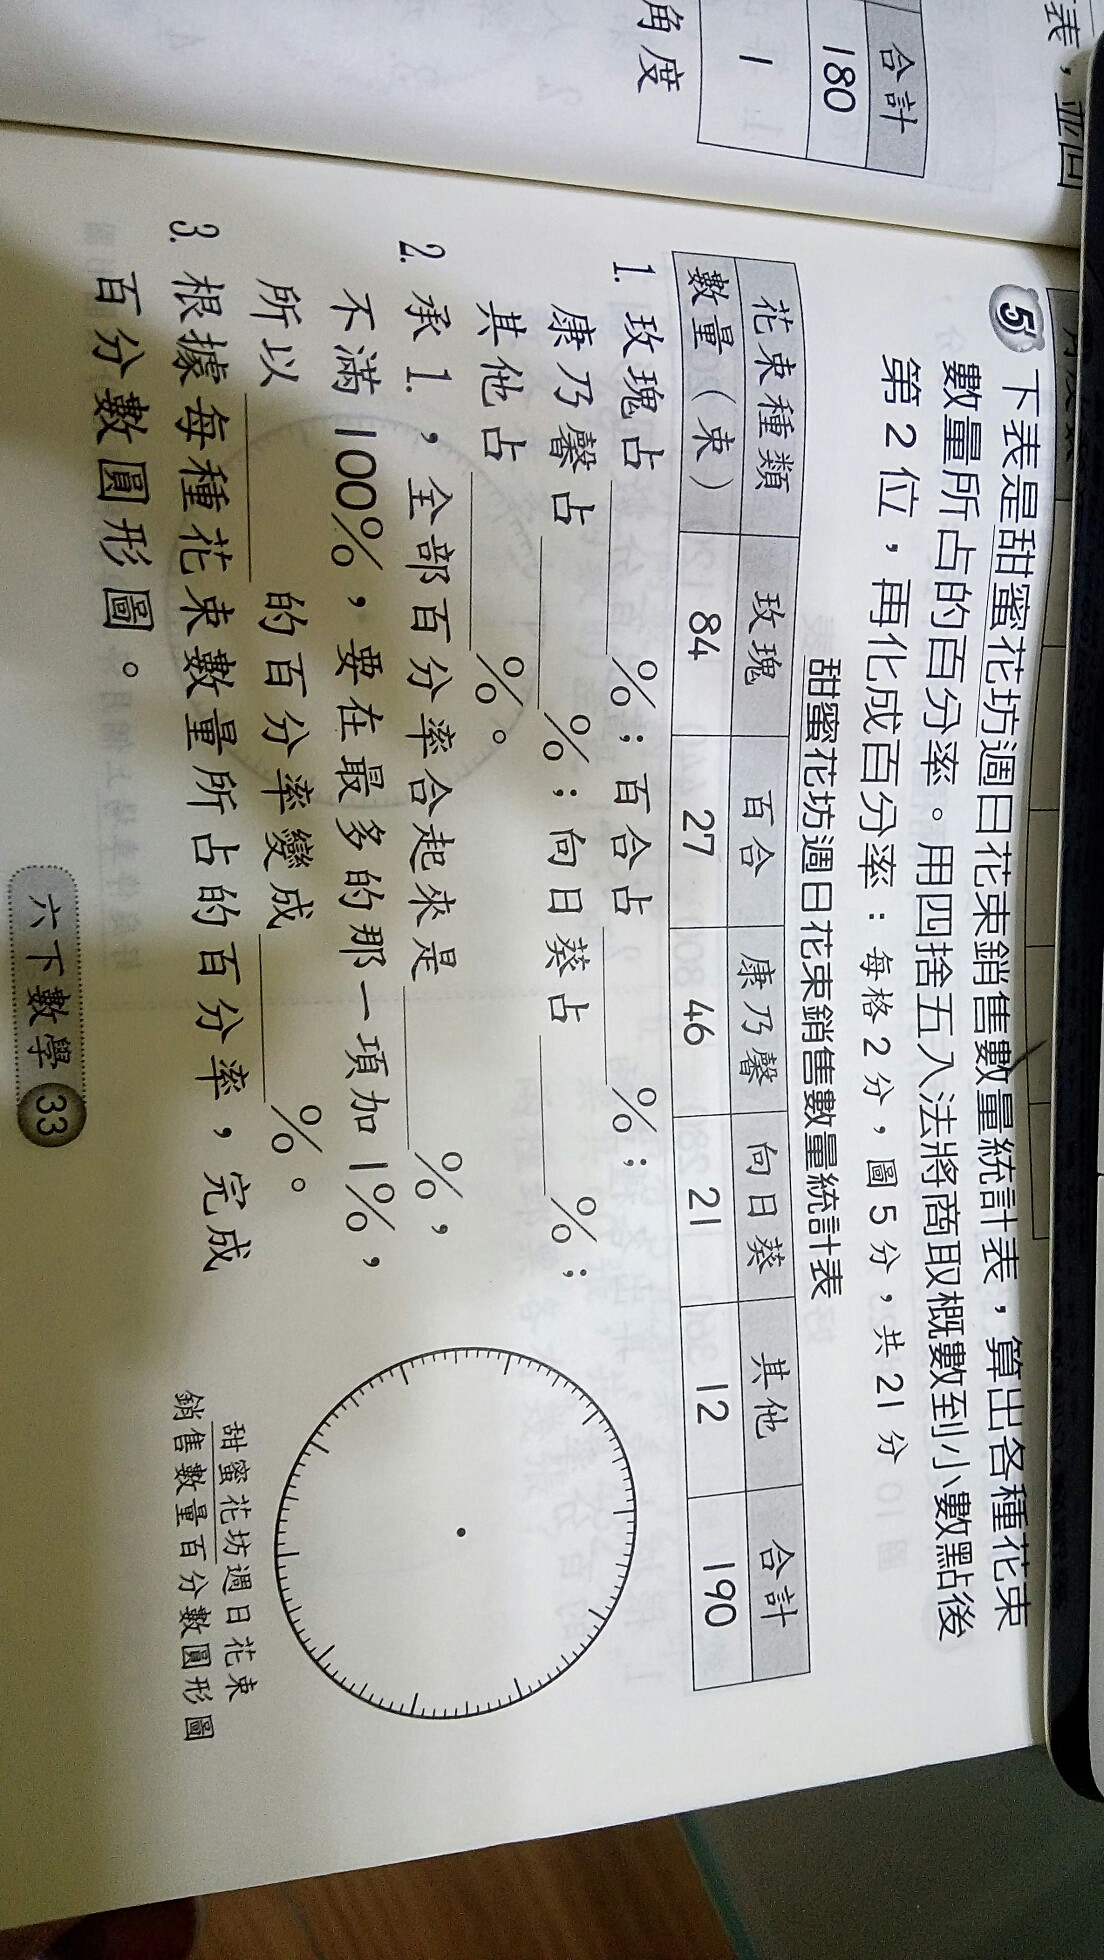 表，並回
合計
180
1
角度
5 下表是甜蜜花坊週日花束銷售數量統計表，算出各種花束
數量所占的百分率。用四捨五入法將商取概數到小數點後
第2位，再化成百分率：每格2分，圖5分，共21分
甜蜜花坊週日花束銷售數量統計表
花束種類 玫瑰 百合 康乃馨 向日葵 其他 合計
數量（束） 84 27 46 21 12 190
1. 玫瑰占 %；百合占 %；
康乃馨占 %；向日葵占 %；
其他占 %。
2. 承1.，全部百分率合起來是 %，
不滿100%，要在最多的那一項加1%，
所以 的百分率變成 %。
3. 根據每種花束數量所占的百分率，完成
百分數圓形圖。
甜蜜花坊週日花束
銷售數量百分數圓形圖
六下數學 33